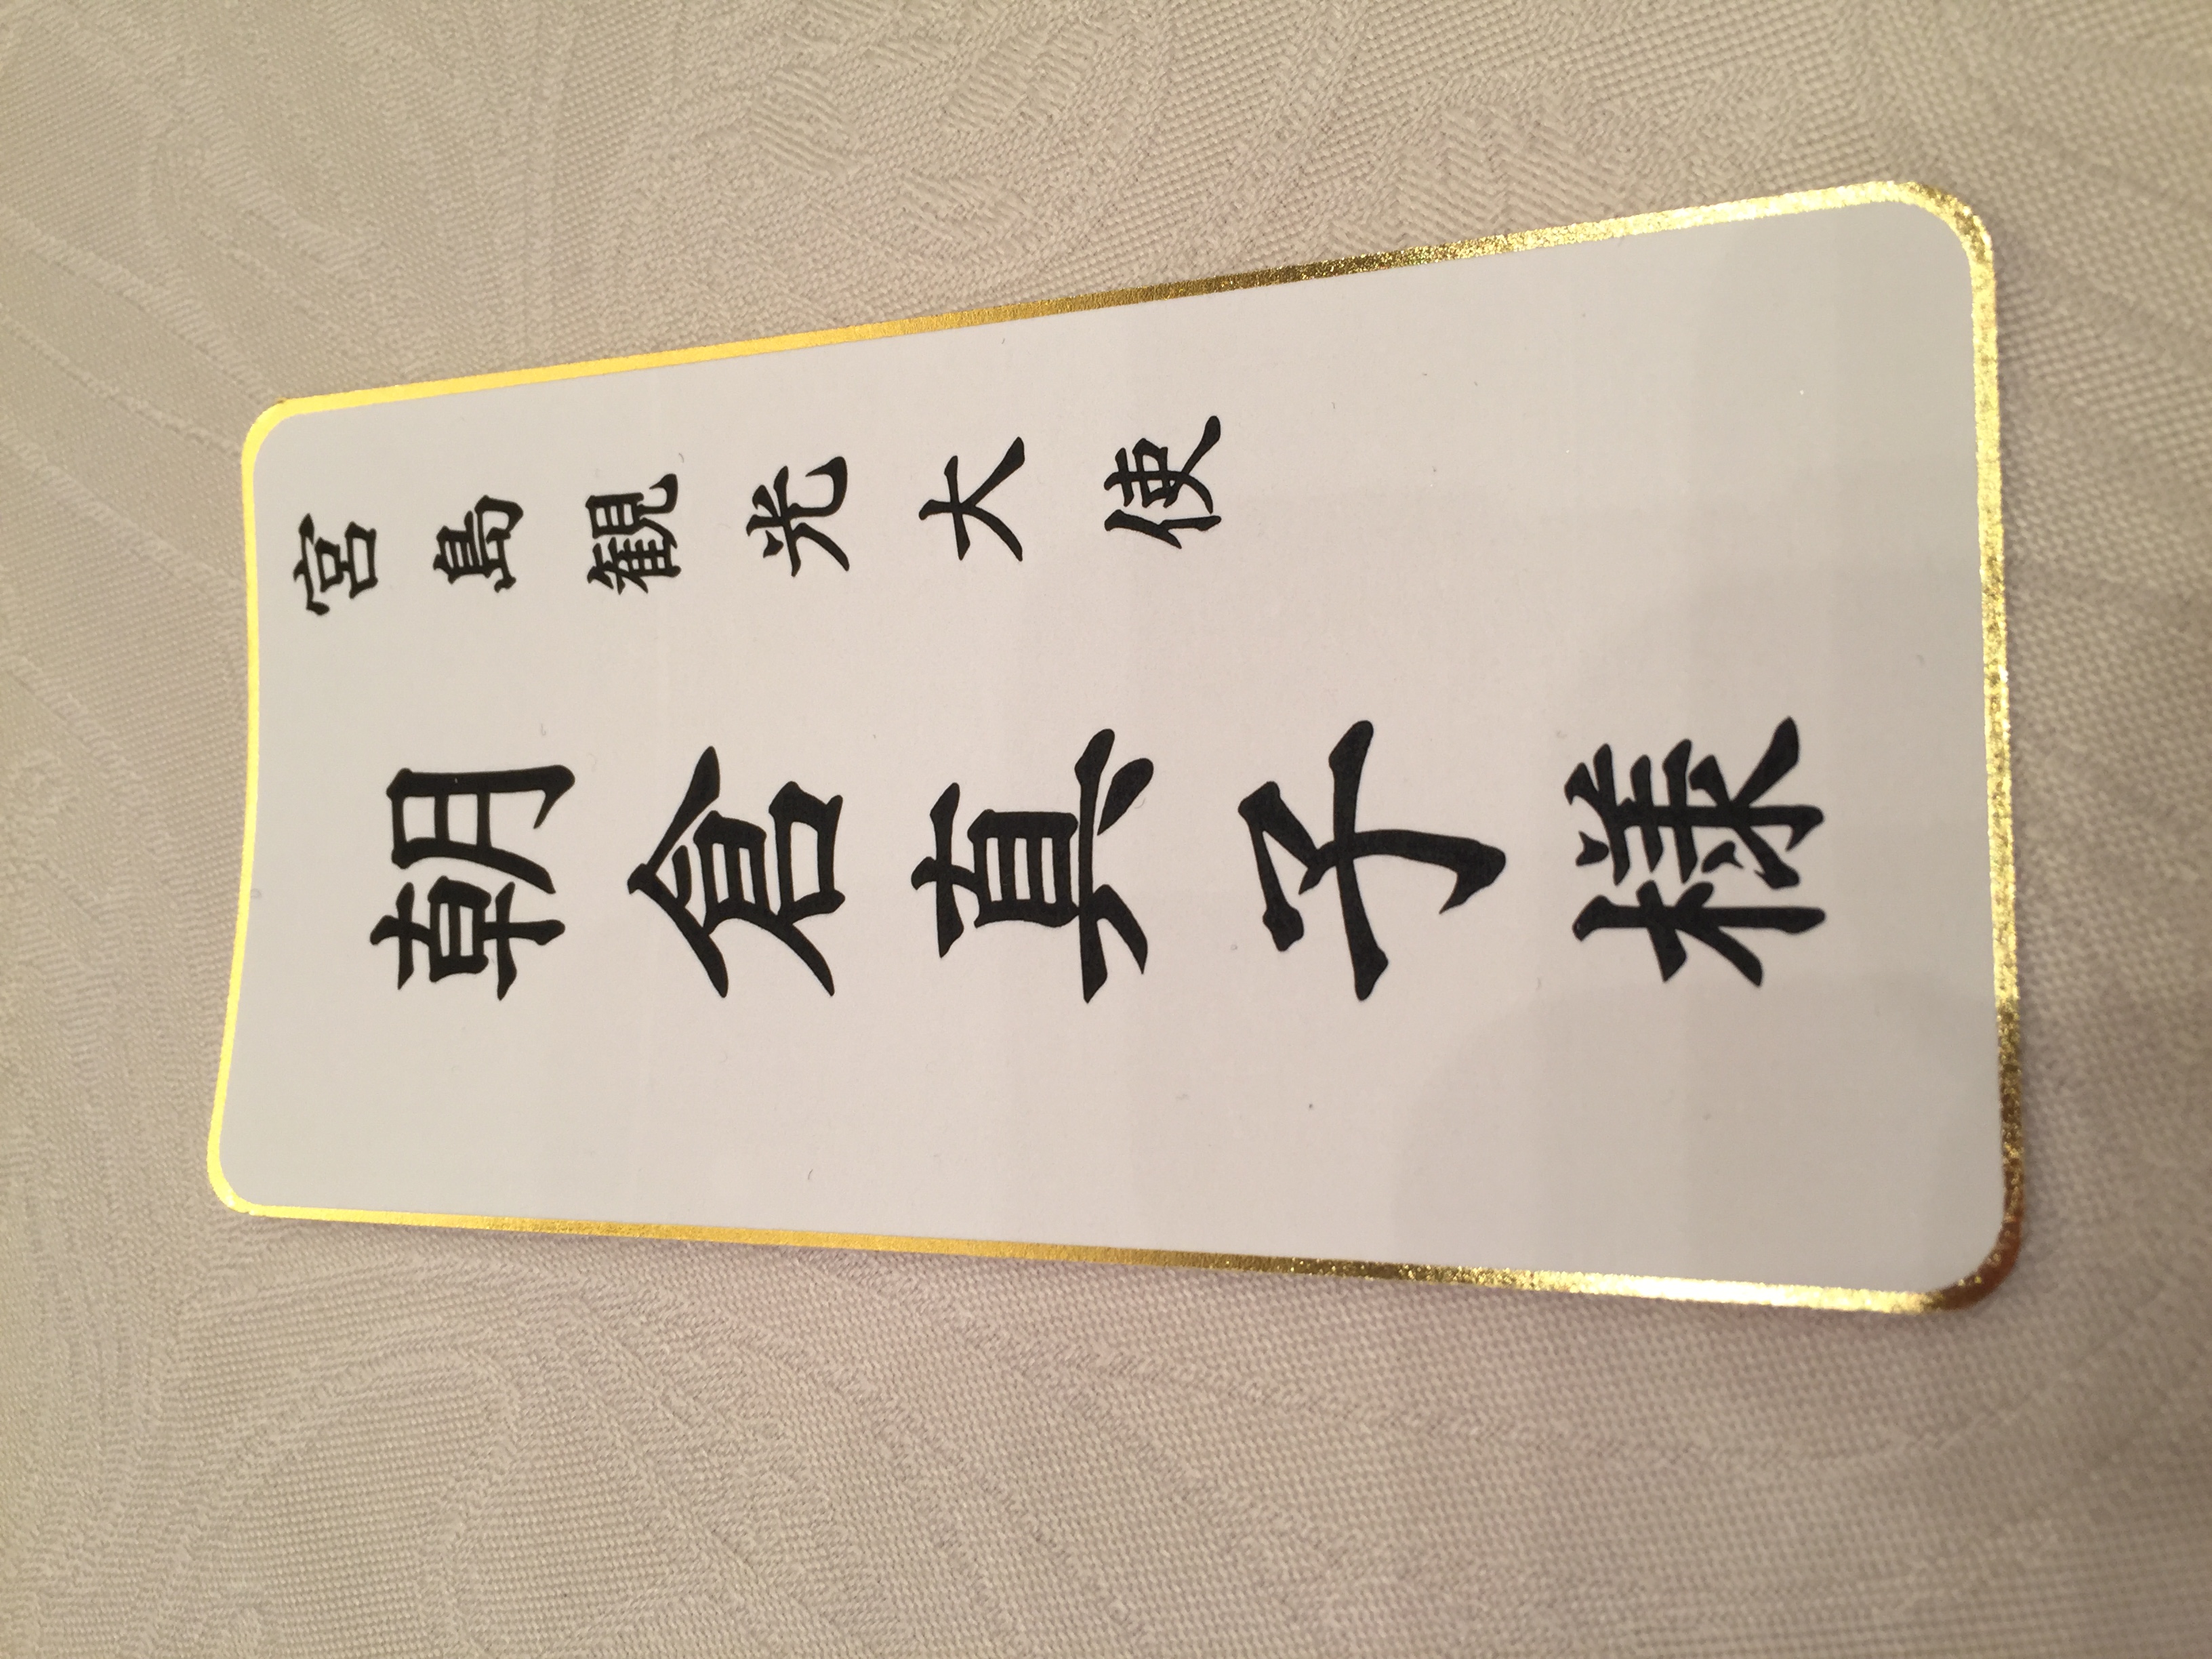 宮島観光大使
朝倉真子様